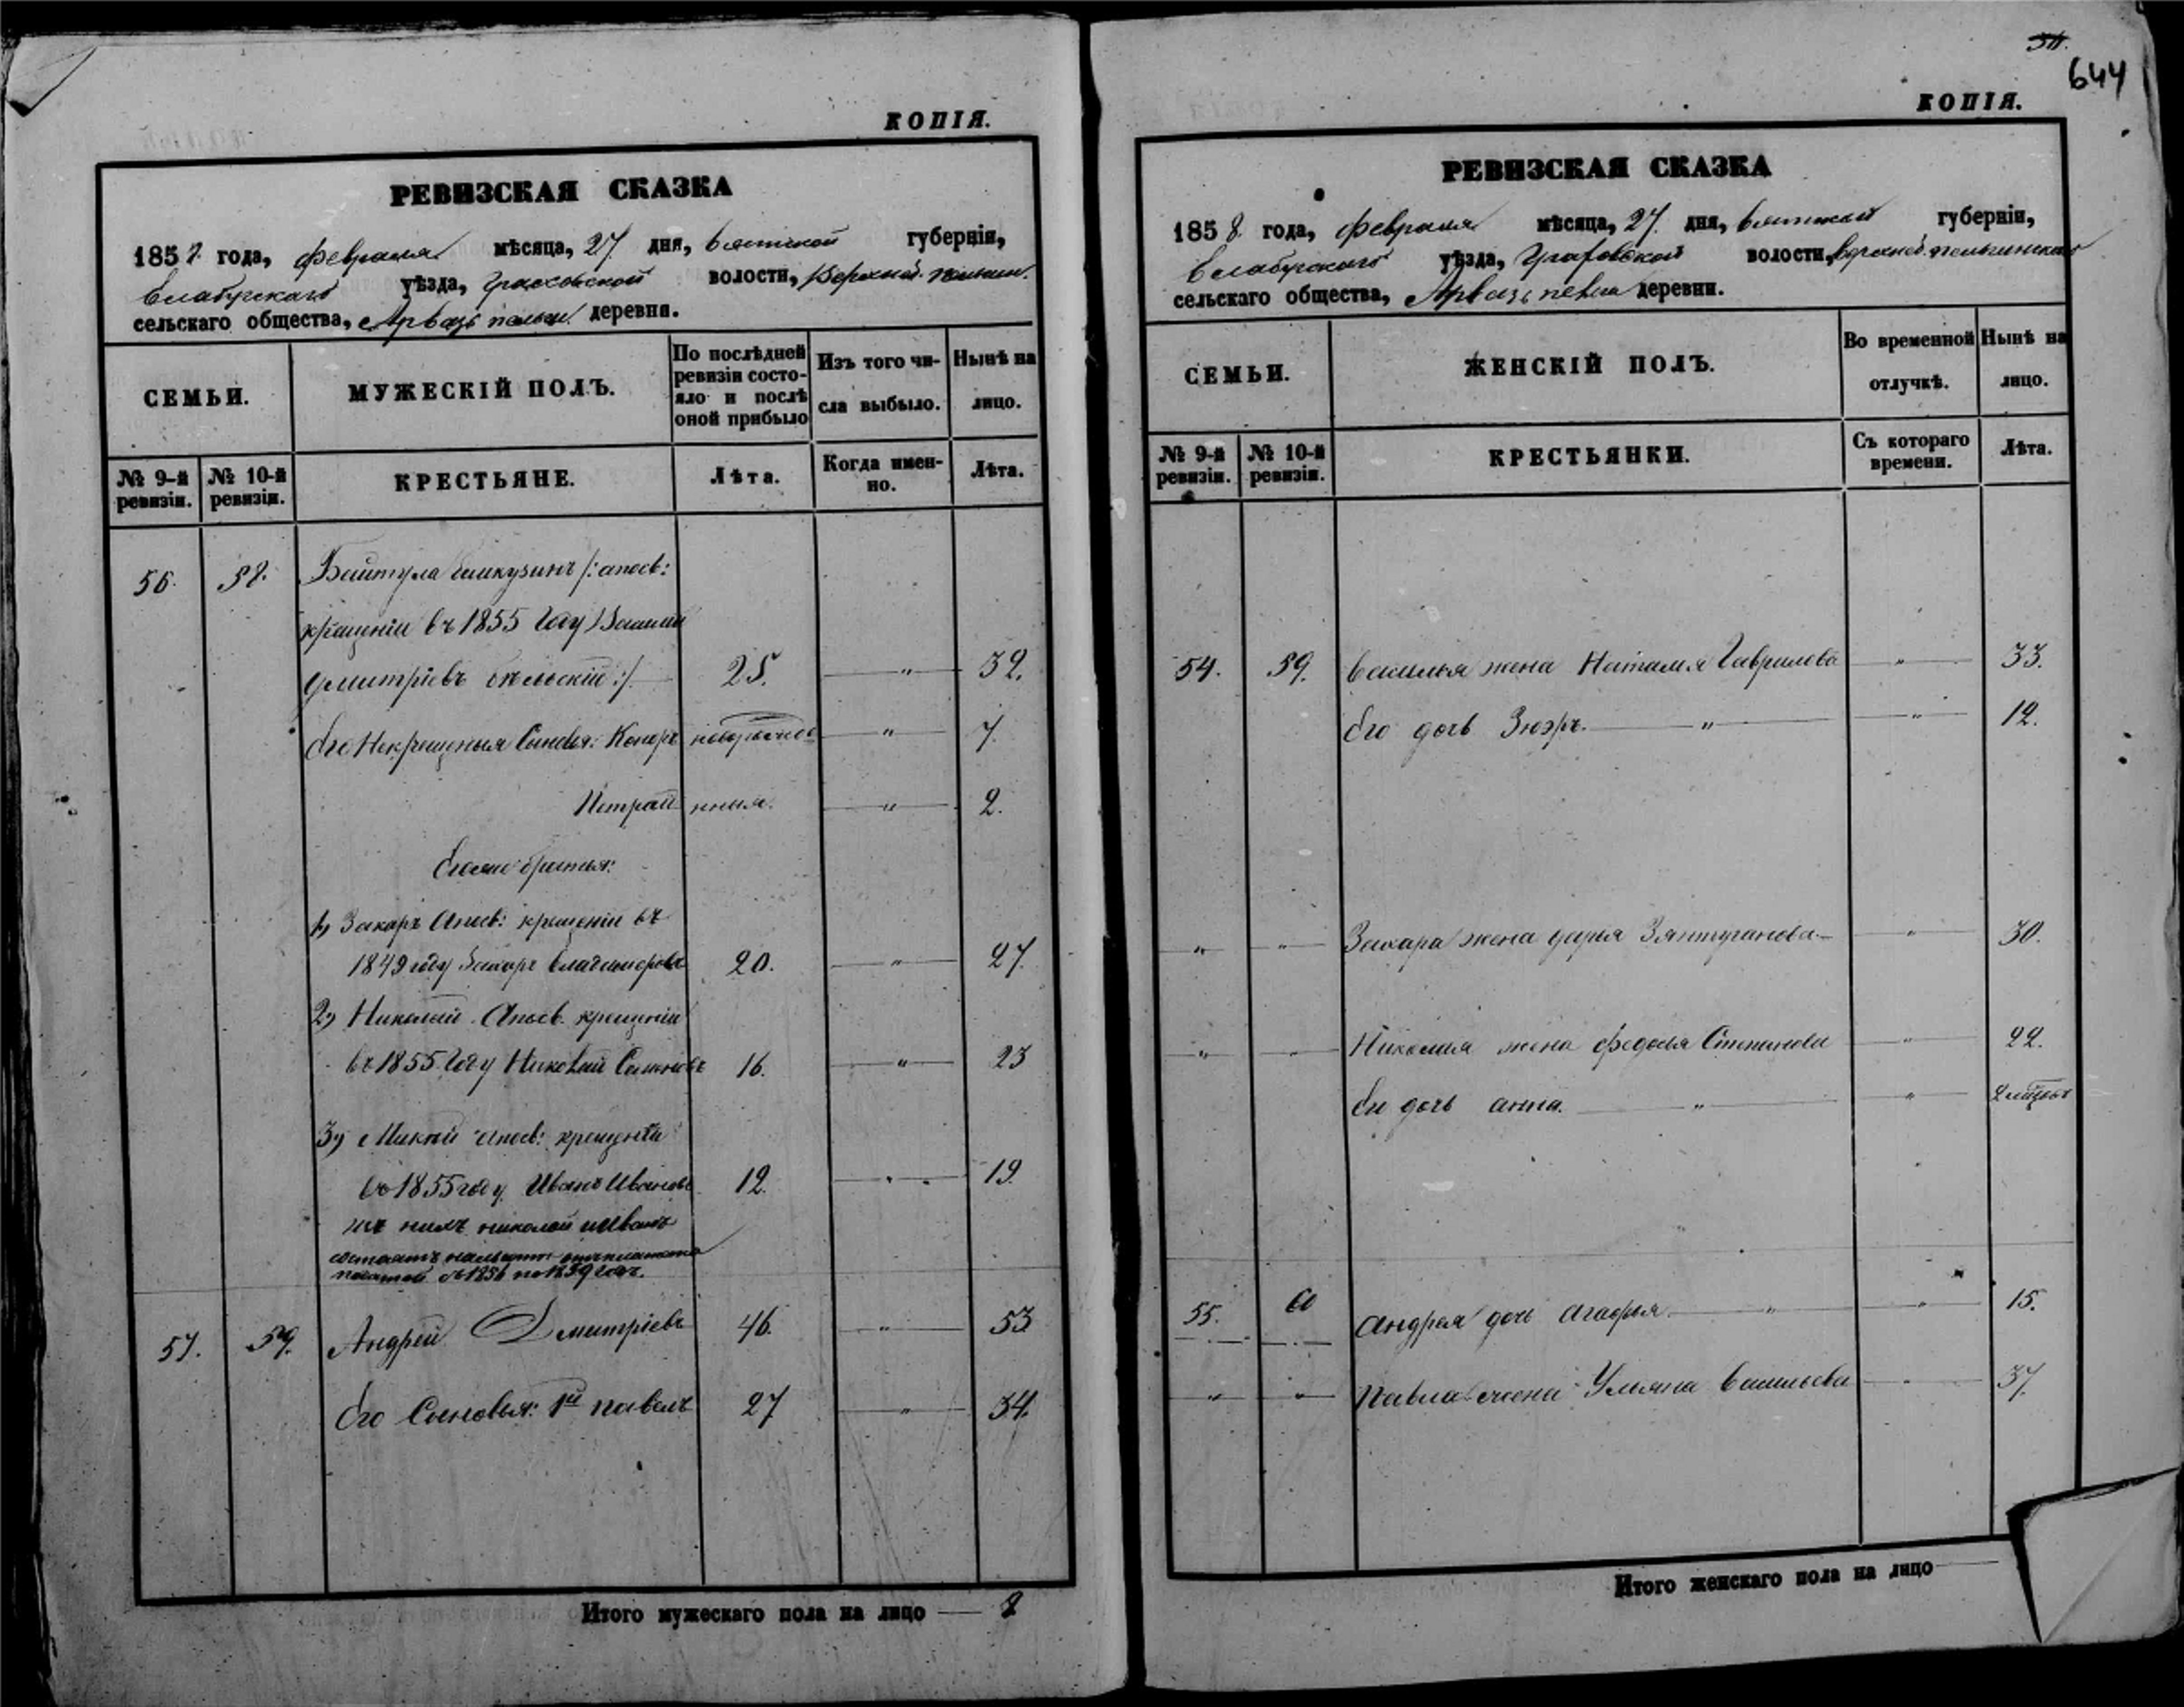 КОПІЯ.
РЕВИЗСКАЯ СКАЗКА
1858 года, февраля мѣсяца, 27 дня, вятской губерніи,
Елабугскаго уѣзда, граховской волости, Верхней
сельскаго общества, Арвазь пельги деревни.
СЕМЬИ.
МУЖЕСКІЙ ПОЛЪ.
По послѣдней ревизіи состояло и послѣ оной прибыло
Изъ того числа выбыло.
Нынѣ на лицо.
№ 9-й ревизіи.
№ 10-й ревизіи.
КРЕСТЬЯНЕ.
Лѣта.
Когда именно.
Лѣта.
56. 58. /:а посв:
крещеніи въ 1855 году Василій
дмитріевъ :/ 25. — " — 32.
его Некрещеныя Сыновья: новорожде — " — 7.
нныя. — " — 2.
братья:
1) Захаръ а посв: крещеніи въ
1849 году Захаръ владимеровъ 20. — " — 27.
2) Николай а посв. крещеніи
въ 1855 году Николай Семеновъ 16. — " — 23
3) а посв: крещеніи
въ 1855 году Иванъ Ивановъ 12. — " — 19.
изъ нихъ николай и Иванъ
состоятъ
податей съ 1856 по 1859 годъ.
57. 59. Андрей Дмитріевъ 46. — " — 53
его Сыновья: 1й павелъ 27 — " — 34.
Итого мужескаго пола на лицо — 8
644
КОПІЯ.
РЕВИЗСКАЯ СКАЗКА
1858 года, февраля мѣсяца, 27 дня, вятской губерніи,
Елабугскаго уѣзда, Граховской волости, верхней
сельскаго общества, Арвазь пельги деревни.
СЕМЬИ.
ЖЕНСКІЙ ПОЛЪ.
Во временной отлучкѣ.
Нынѣ на лицо.
№ 9-й ревизіи.
№ 10-й ревизіи.
КРЕСТЬЯНКИ.
Съ котораго времени.
Лѣта.
54. 59. василья жена Наталия Гаврилова — " — 33.
его дочь Зюэрь. — " — — " — 12.
" " Захара жена дарья Зянтуганова — " — 30.
" " Николая жена федосья Степанова — " — 22.
его дочь анна. — " — — " —
55. 60 андрея дочь агафья — " — — " — 15.
" " Павла жена Ульяна васильева — " — 37.
Итого женскаго пола на лицо —